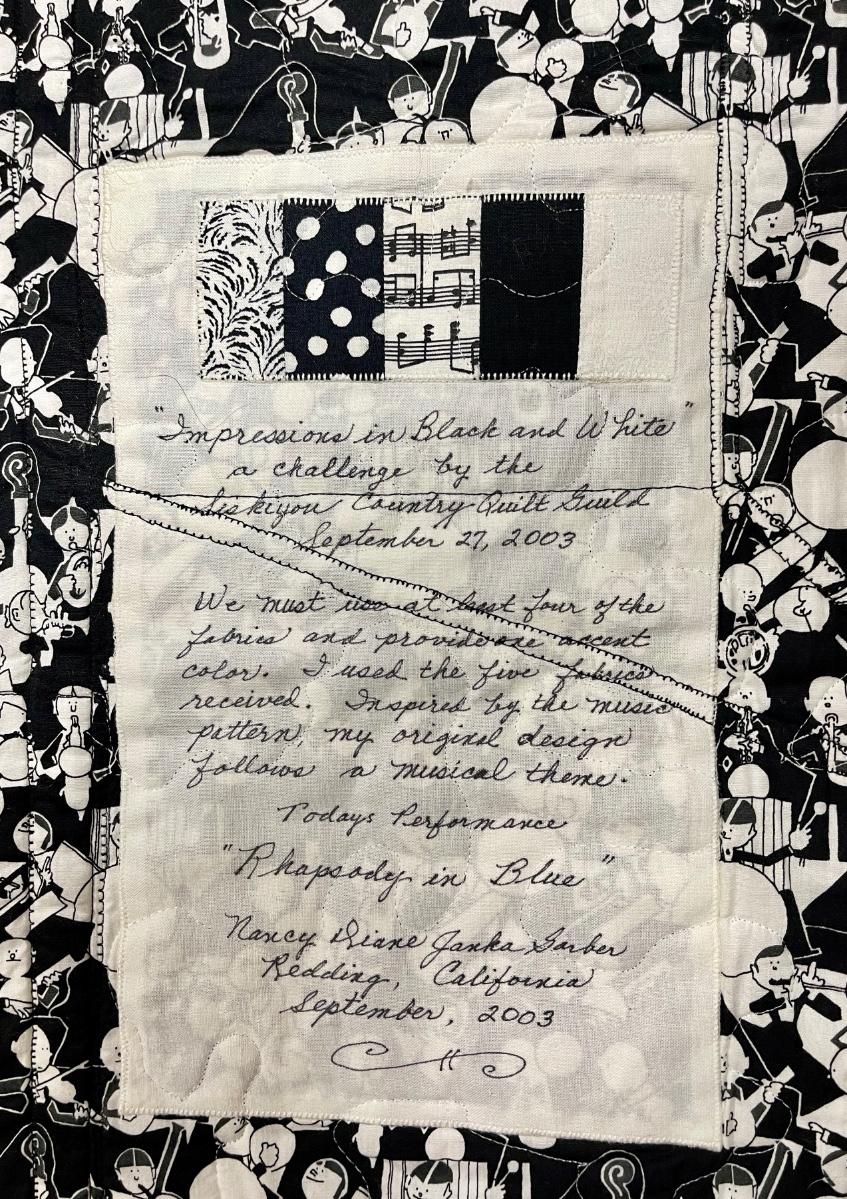 "Impressions in Black and White"
a challenge by the
Siskiyou Country Quilt Guild
September 27, 2003
We must use at least four of the
fabrics and provide one accent
color. I used the five fabrics
received. Inspired by the music
pattern, my original design
follows a musical theme.
Todays Performance
"Rhapsody in Blue"
Nancy Diane Janka Garber
Redding, California
September, 2003